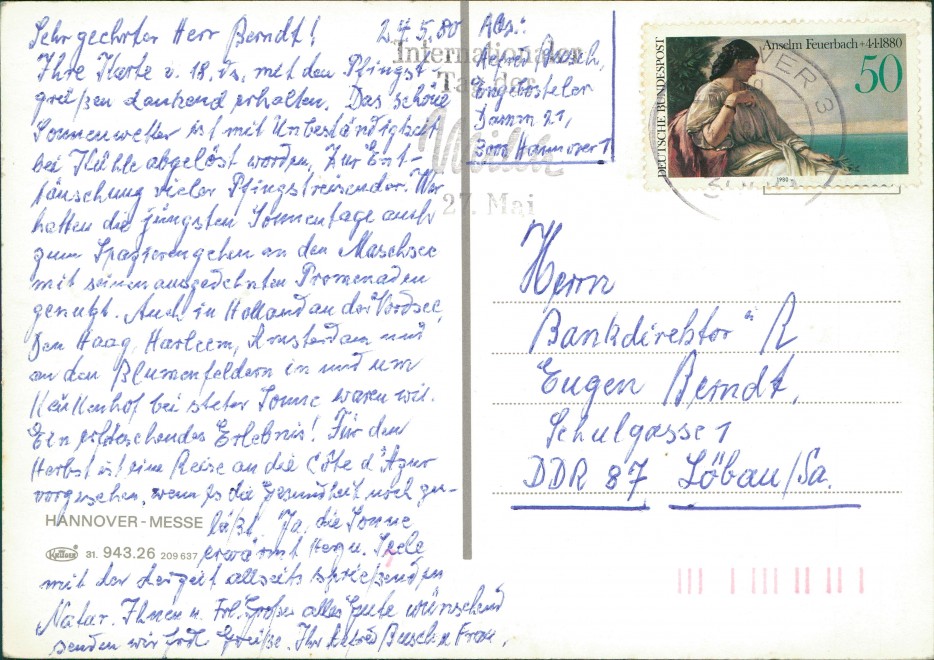 Sehr geehrter Herr Berndt! 24.5.80
Ihre Karte v. 18. ds. mit den Pfingst-
grüßen dankend erhalten. Das schöne
Sonnenwetter ist mit Unbeständigkeit
bei Kühle abgelöst worden, zur Ent-
täuschung vieler Pfingstreisender. Wir
hatten die jüngsten Sonnentage auch
zum Spazierengehen an den Maschsee
mit seinen ausgedehnten Promenaden
genutzt. Auch in Holland an der Nordsee,
Den Haag, Harleem, Amsterdam und
an den Blumenfeldern in und um
Keukenhof bei steter Sonne waren wir.
Ein Erlebnis! Für den
Herbst ist eine Reise an die Côte d'Azur
vorgesehen, wenn es die Gesundheit noch zu-
läßt. Ja, die Sonne
erwärmt Herz u. Seele
mit der derzeit allseits sprießenden
Natur. Ihnen u. Frl. Große alles Gute wünschend
senden wir Grüße. Ihr Alfred Busch u. Frau.
HANNOVER-MESSE
Krüger 31. 943.26 209 637
Abs.:
Alfred Busch,
Engebosteler
Damm 21,
3000 Hannover 1
Internationaler
Tag der
Milch
27. Mai
DEUTSCHE BUNDESPOST
Anselm Feuerbach +4·1·1880
50
1980
HANNOVER 3
Herrn
Bankdirektor i R
Eugen Berndt,
Schulgasse 1
DDR 87 Löbau/Sa.